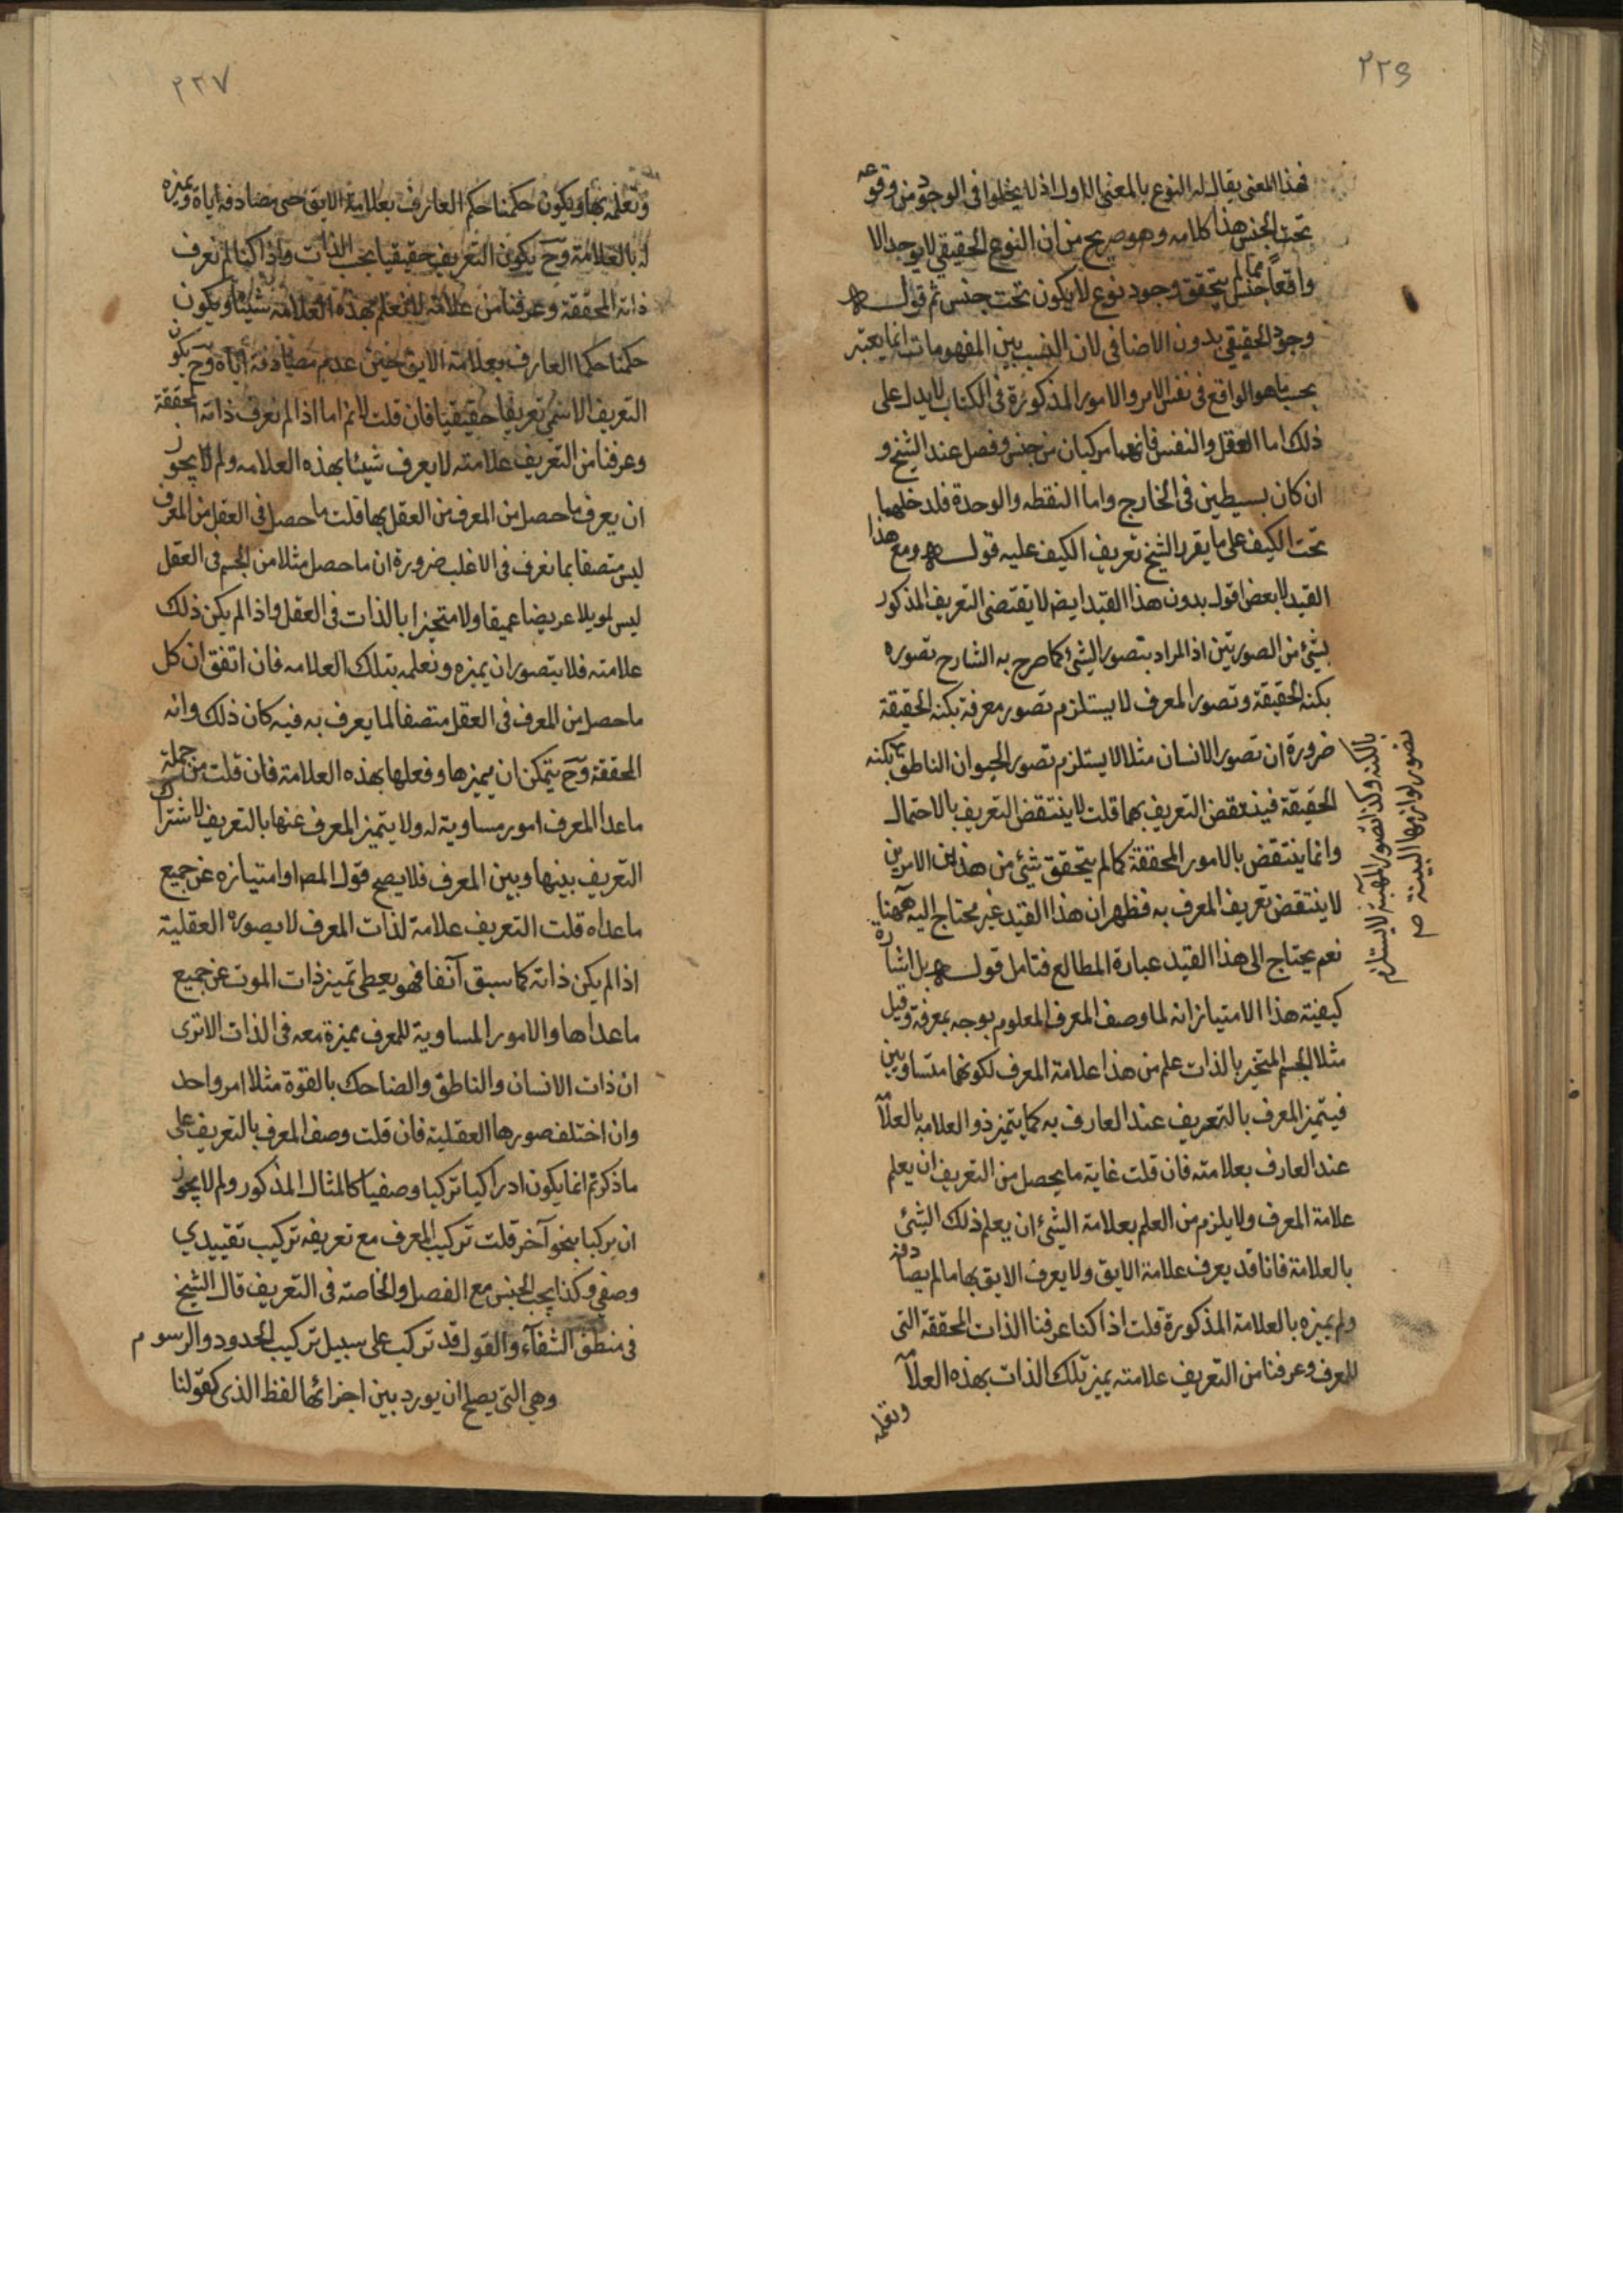 ٢٢٦
فهذا المعنى يقال له النوع بالمعنى الاول اذ لا يخلوا فى الوجود من وقوعه
تحت الجنس هذا كلامه وهو صريح من ان النوع الحقيقي لا يوجد الا
واقعا جنس مما لم يتحقق وجود نوع لا يكون تحت جنس ثم قوله
وجود الحقيقي بدون الاضافى لان النسب بين المفهومات انما يعتبر
بحسب ما هو الواقع فى نفس الامر والامور المذكورة فى الكتاب لا يدل على
ذلك اما العقل والنفس فانهما مركبان من جنس وفصل عند الشيخ و
ان كان بسيطين فى الخارج واما النقطه والوحدة فلدخلهما
تحت الكيف على ما يقرر الشيخ تعريف الكيف عليه قوله ومع هذا
القيد لا بعض اقول بدون هذا القيد ايضا لا يقتضى التعريف المذكور
بشئ من الصورتين اذ المراد بتصور الشئ كما صرح به الشارح تصوره
بكنه الحقيقة وتصور المعرف لا يستلزم تصور معرفة بكنه الحقيقة
ضرورة ان تصور الانسان مثلا لا يستلزم تصور الحيوان الناطق بكنه
الحقيقة فينتقض التعريف بهما قلت لا ينتقض التعريف بالاحتمال
وانما ينتقض بالامور المحققة كما لم يتحقق شئ من هذين الامرين
لا ينتقض تعريف المعرف به فظهر ان هذا القيد غير محتاج اليه ههنا
نعم يحتاج الى هذا القيد عبارة المطالع فتامل قوله بل اشارة
كيفية هذا الامتياز انه لما وصف المعرف المعلوم بوجه بمعرفة وقيل
مثلا الجسم المتحيز بالذات علم من هذا علامة المعرف لكونهما متساويين
فيتميز المعرف بالتعريف عند العارف به كما يتميز ذو العلامة بالعلا
عند العارف بعلامته فان قلت غاية ما يحصل من التعريف ان يعلم
علامة المعرف ولا يلزم من العلم بعلامة الشئ ان يعلم ذلك الشئ
بالعلامة فانا قد يعرف علامة الابق ولا يعرف الابق بها ما لم يصادفه
ولم يميزه بالعلامة المذكورة قلت اذا كنا عرفنا الذات المحققة التى
للمعرف وعرفنا من التعريف علامته يميز تلك الذات بهذه العلا
ونعلمه
بالكنه وكذا تصور المهية لا يستلزم
تصور لوازمها البينة صح
٢٢٧
ونعلمه بها ويكون حكمنا حكم العارف بعلامة الابق حين مصادفة اياه ويميزه
له بالعلامة وح يكون التعريف حقيقيا بحسب الذات واذا كنا لم نعرف
ذاته المحققة وعرفنا من علامته لا نعلم بهذه العلامة شيئا ويكون
حكمنا حكم العارف بعلامة الابق حين عدم مصادفة اياه وح يكون
التعريف الاسمي تعريفا حقيقيا فان قلت لا نم اما اذا لم نعرف ذاته المحققة
وعرفنا من التعريف علامته لا يعرف شيئا بهذه العلامه ولم لا يجوز
ان يعرف ما حصل من المعرف من العقل بها قلت ما حصل فى العقل من المعرف
ليس متصفا بما نعرف فى الاغلب ضرورة ان ما حصل مثلا من الجسم فى العقل
ليس طويلا عريضا عميقا ولا متحيزا بالذات فى العقل واذا لم يكن ذلك
علامته فلا يتصور ان يميزه ونعلمه بتلك العلامه فان اتفق ان كل
ما حصل من المعرف فى العقل متصفا لما يعرف به فيه كان ذلك وانه
المحققة وح يتمكن ان يميزها وفعلها بهذه العلامة فان قلت من جملة
ما عدا المعرف امور مساوية له ولا يتميز المعرف عنها بالتعريف لاشتراك
التعريف بينها وبين المعرف فلا يصح قول المص او امتيازه عن جميع
ما عداه قلت التعريف علامة لذات المعرف لا بصوره العقلية
اذا لم يكن ذاته كما سبق آنفا فهو يعطى تميز ذات الموت عن جميع
ما عداها والامور المساوية للمعرف مميزة معه فى الذات الا ترى
ان ذات الانسان والناطق والضاحك بالقوة مثلا امر واحد
وان اختلف صورها العقلية فان قلت وصف المعرف بالتعريف على
ما ذكرتم انما يكون ادراكيا تركيبا وصفيا كالمثال المذكور ولم لا يجوز
ان يركبا بنحو آخر قلت تركيب المعرف مع تعريفه تركيب تقييدي
وصفي وكذا يجب الجنس مع الفصل والخاصة فى التعريف قال الشيخ
فى منطق الشفآء والقول قد تركب على سبيل تركيب الحدود والرسوم
وهي التى يصلح ان يورد بين اجزائها لفظ الذى كقولنا